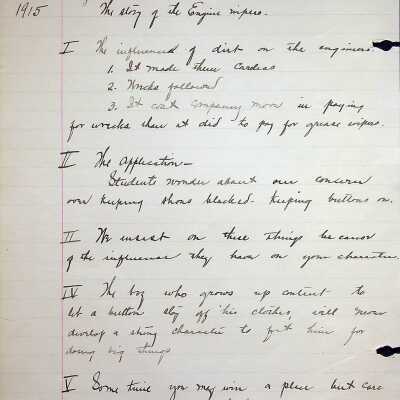 1915
The story of the Engine wipers.
I The influence of dirt on the engineers.
1. It made them careless
2. Wrecks followed
3. It cost company more in paying
for wrecks than it did to pay for grease wipers.
II The application—
Students wonder about our concern
over keeping shoes blacked - Keeping buttons on.
II We insist on these things because
of the influence they have on your character.
IV The boy who grows up content to
let a button stay off his clothes, will never
develop a strong character to fit him for
doing big things
V Some time you may win a place but care